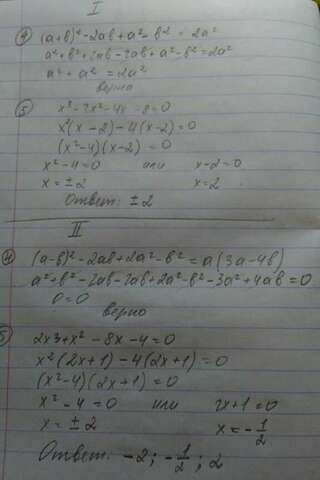 I
④ (a+b)² - 2ab + a² - b² = 2a²
a² + b² + 2ab - 2ab + a² - b² = 2a²
a² + a² = 2a²
верно
⑤ x³ - 2x² - 4x - 8 = 0
x²(x - 2) - 4(x - 2) = 0
(x² - 4)(x - 2) = 0
x² - 4 = 0 или x - 2 = 0
x = ± 2 x = 2
Ответ: ± 2
II
④ (a-b)² - 2ab + 2a² - b² = a(3a - 4b)
a² + b² - 2ab - 2ab + 2a² - b² - 3a² + 4ab = 0
0 = 0
верно
⑤ 2x3 + x² - 8x - 4 = 0
x²(2x+1) - 4(2x+1) = 0
(x² - 4)(2x+1) = 0
x² - 4 = 0 или 2x+1 = 0
x = ± 2 x = -1/2
Ответ: -2; -1/2; 2